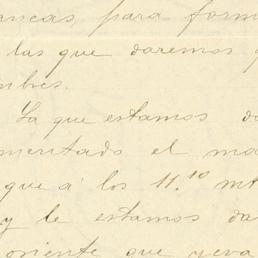 ancas, para form
las que daremos
mbres.
La que estamos da
mentado el ma
que á los 11.10 mt
y le estamos da
oriente que yeva